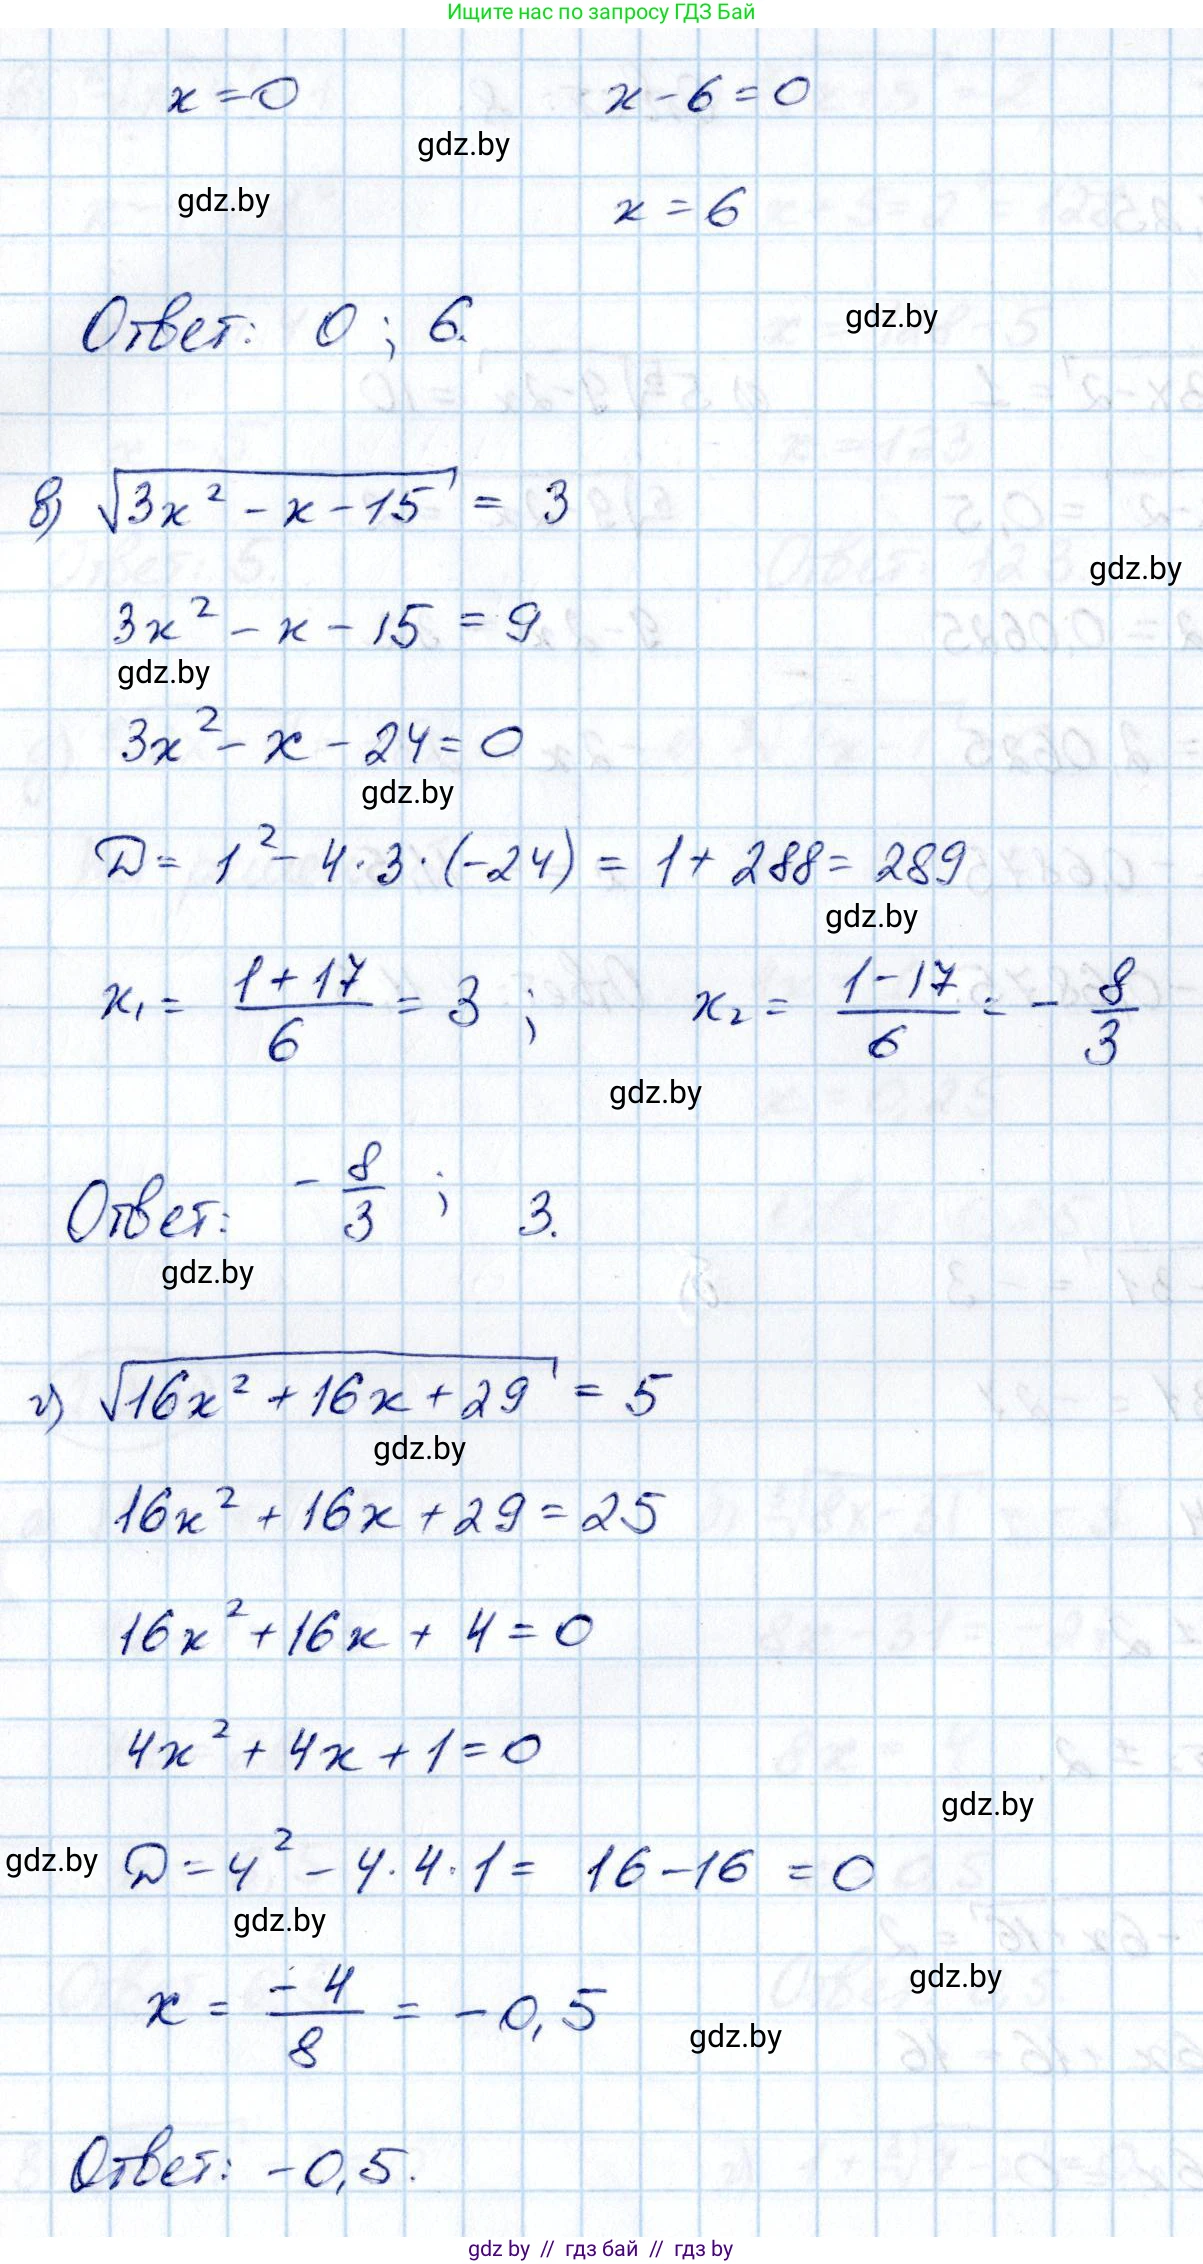 Ищите нас по запросу ГДЗ Бай
x = 0 x - 6 = 0
gdz.by
gdz.by
x = 6
Ответ: 0 ; 6.
gdz.by
в) √(3x² - x - 15) = 3
gdz.by
3x² - x - 15 = 9
gdz.by
3x² - x - 24 = 0
gdz.by
D = 1² - 4 · 3 · (-24) = 1 + 288 = 289
gdz.by
x₁ = (1 + 17)/6 = 3 ; x₂ = (1 - 17)/6 = - 8/3
gdz.by
Ответ: - 8/3 ; 3.
gdz.by
г) √(16x² + 16x + 29) = 5
gdz.by
16x² + 16x + 29 = 25
16x² + 16x + 4 = 0
4x² + 4x + 1 = 0
gdz.by
gdz.by
D = 4² - 4 · 4 · 1 = 16 - 16 = 0
gdz.by
gdz.by
x = -4/8 = -0,5
gdz.by
Ответ: -0,5.
gdz by // гдз бай // гдз by